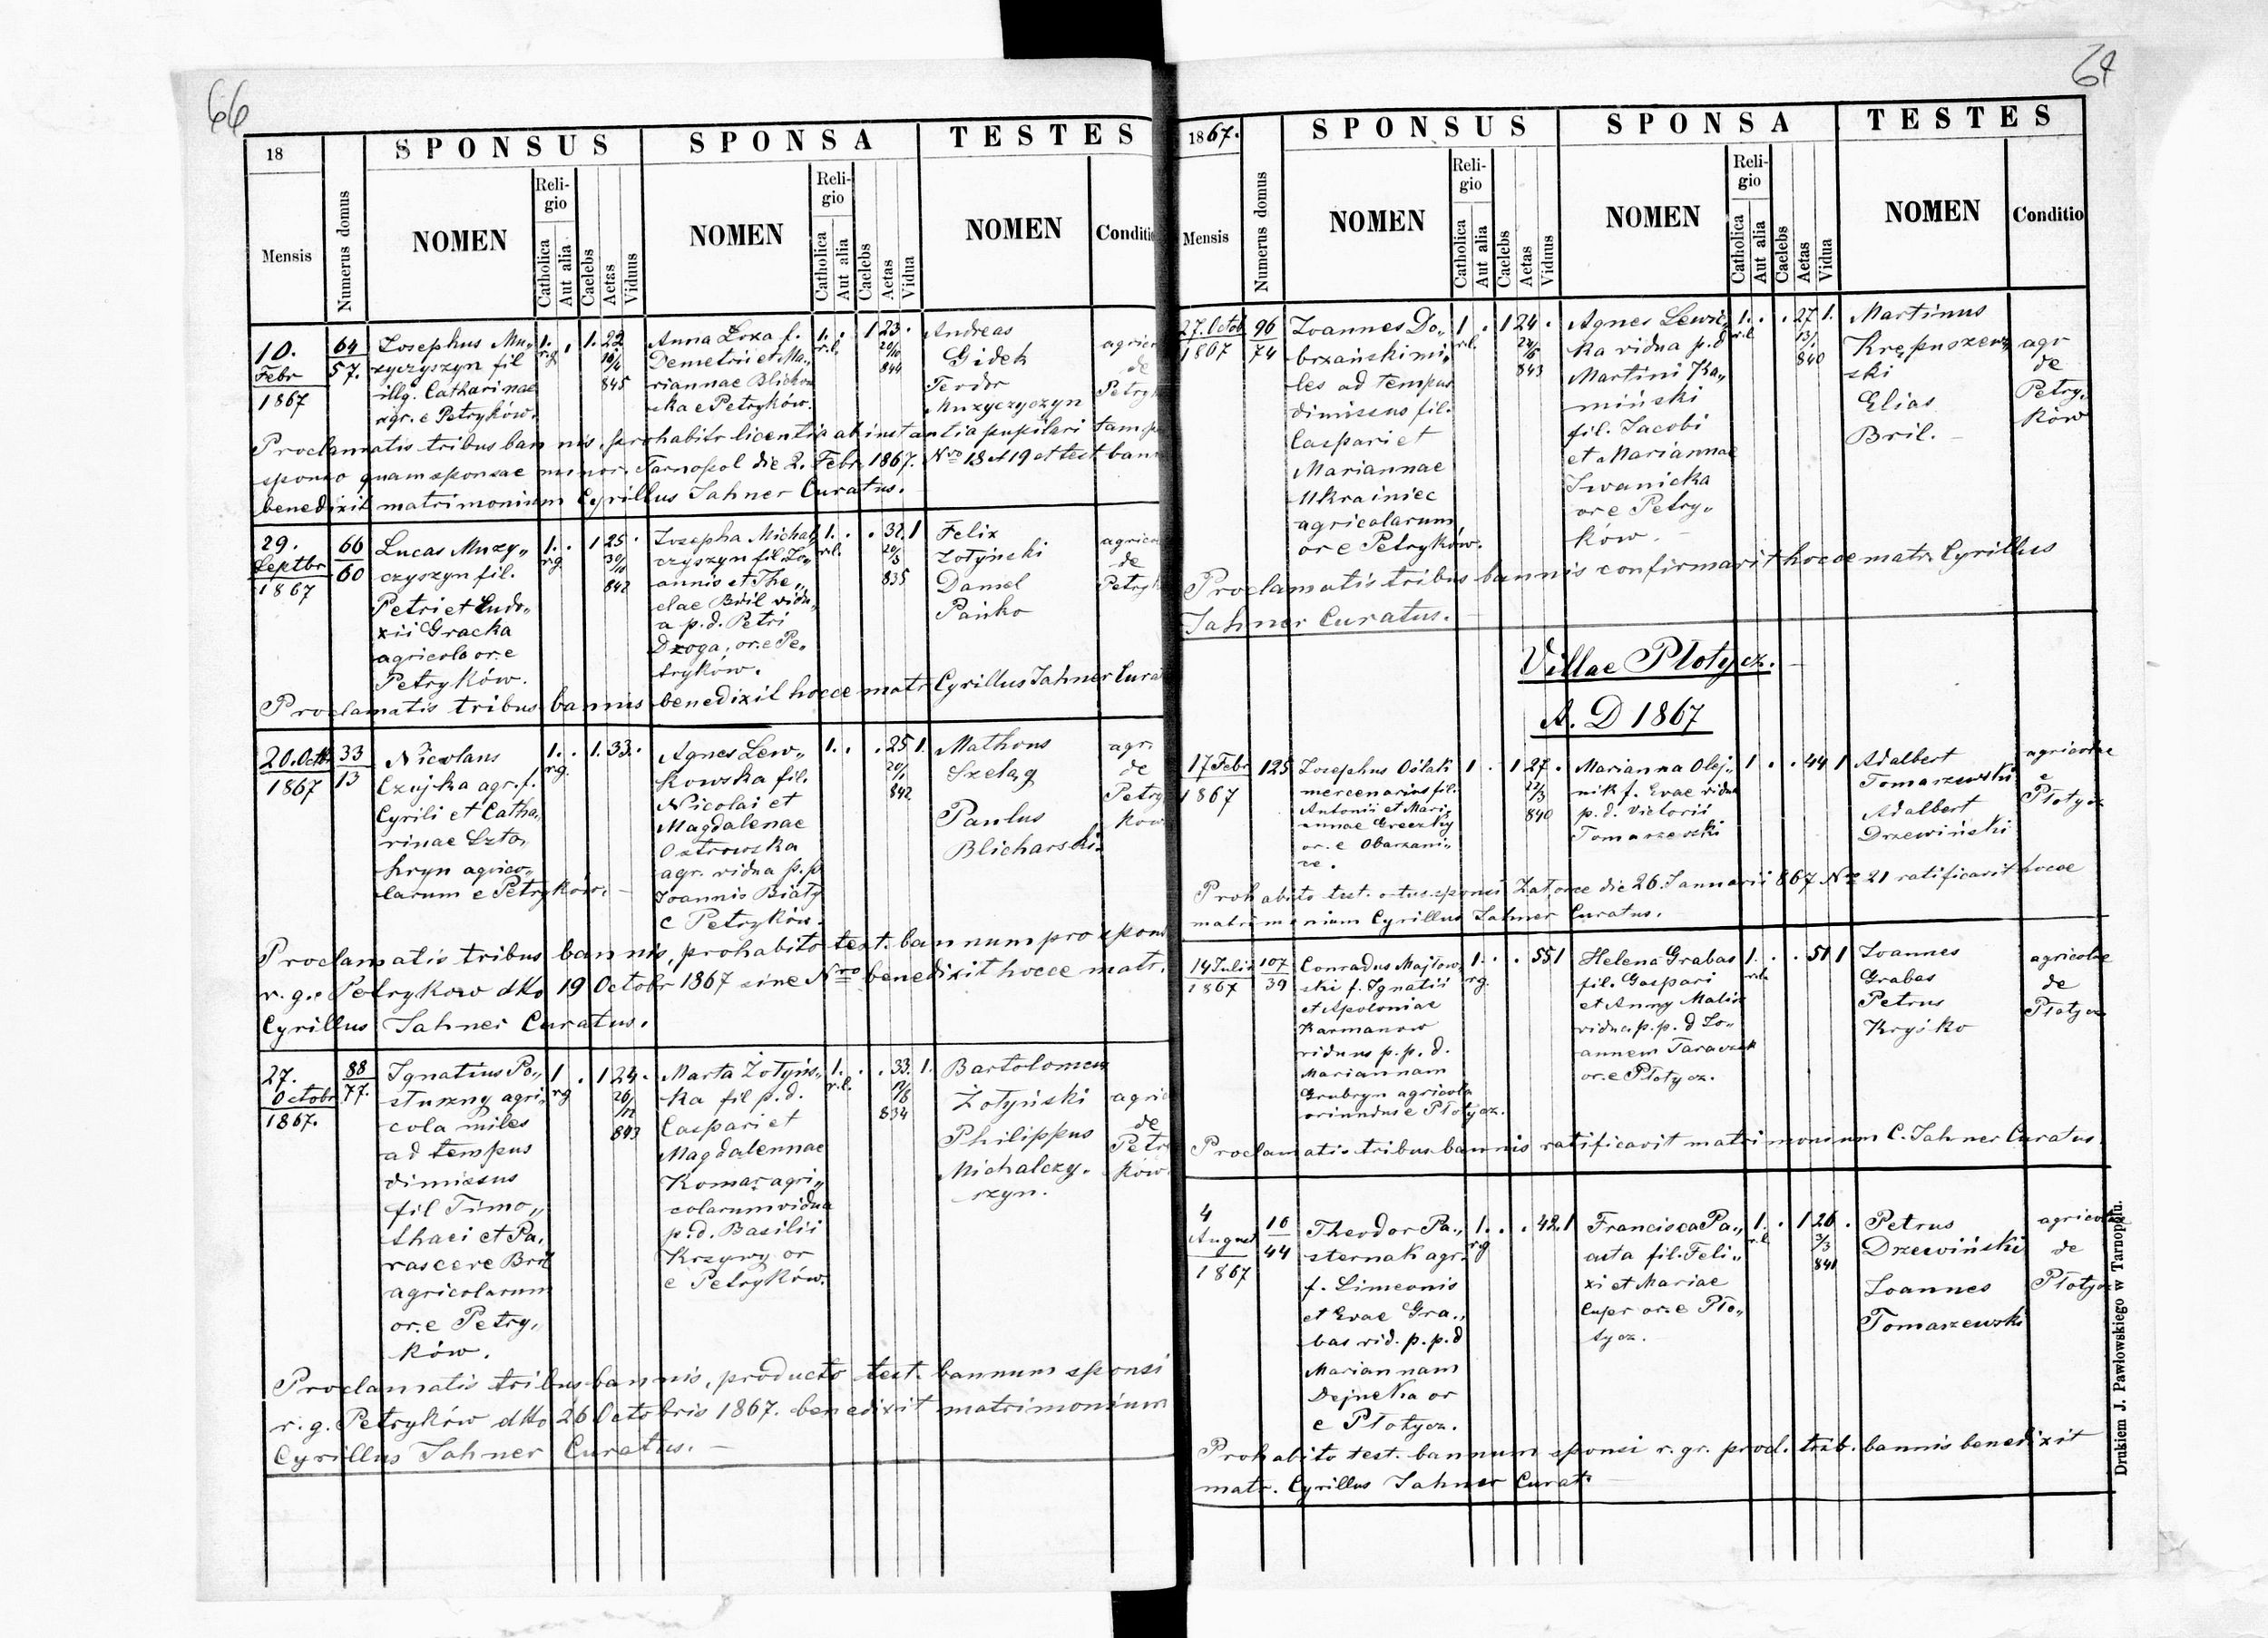 66
18
SPONSUS
SPONSA
TESTES
Mensis
Numerus domus
NOMEN
Reli-
gio
Catholica
Aut alia
Caelebs
Aetas
Viduus
NOMEN
Reli-
gio
Catholica
Aut alia
Caelebs
Aetas
Vidua
NOMEN
Conditio
10.
Febr
1867
64
57.
Josephus Mu„
zyczyszyn fil
illg. Catharinae
agr. e Petryków.
1.
r.g
1. 22
10/4
845
Anna Loza f.
Demetrii et Ma„
riannae Blichar
ska e Petryków.
1.
r.l.
1 23.
20/10
844
Andreas
Gidek
Teodor
Muzyczyczyn
agrico
de
Petryk
Proclamatis tribus bannis, prohabitr licentia ab instantia pupilari tam
sponso quam sponsae minor. Tarnopol die 2. Febr. 1867. Nro 18 et 19 et test bann
benedixit matrimonium Cyrillus Jahner Curatus.
29.
Septbr
1867
66
60
Lucas Muzy„
czyszyn fil.
Petri et Eudo„
xii Gracka
agricola or. e
Petryków.
1.
rg
1 25
30/10
842
Josepha Michal„
czyszyn fil Jo„
annis et The„
clae Bril vidu„
a p.d. Petri
Dzoga, or. e Pe„
tryków.
1.
r.l.
. 32. 1
20/3
835
Felix
Zotyński
Daniel
Pańko
agrico
de
Petryk
Proclamatis tribus bannis benedixit hocce matr. Cyrillus Jahner Cura
20. Octb
1867
33
13
Nicolaus
Czujka agr. f.
Cyrili et Catha„
rinae Szto„
hryn agrico„
larum e Petryków. —
1.
rg.
1. 33.
Agnes Lew„
kowska fil.
Nicolai et
Magdalenae
Ostrowska
agr. vidua p.p
Joannis Biały
e Petryków.
1.
. 25 1.
20/1
842
Matheus
Szeląg
Paulus
Blicharski.
agr.
de
Petry
ków
Proclamatis tribus bannis, prohabito test. bannum pro spons
r. g. e Petrykow dtto 19 Octobr 1867 sine Nro benedixit hocce matr.
Cyrillus Jahner Curatus.
27.
Octobr
1867.
88
77.
Ignatius Po„
sturzny agri„
cola miles
ad tempus
dimissus
fil Timo„
thaei et Pa„
rascere Bril
agricolarum
or. e Petry„
ków.
1
rg
1 24.
26/12
843
Marta Żotyńs„
ka fil p.d.
Caspari et
Magdalennae
Komar agri„
colarum vidua
p.d. Basilii
Krzywy or
e Petryków.
1.
r.l.
. 33. 1.
12/8
834
Bartolomeus
Żotyński
Philippus
Michalczy„
szyn.
agric
de
Petry
ków.
Proclamatis tribus bannis, producto test. bannum sponsi
r. g. Petryków dtto 26 Octobris 1867. benedixit matrimonium
Cyrillus Jahner Curatus. —
67
1867.
SPONSUS
SPONSA
TESTES
Mensis
Numerus domus
NOMEN
Reli-
gio
Catholica
Aut alia
Caelebs
Aetas
Viduus
NOMEN
Reli-
gio
Catholica
Aut alia
Caelebs
Aetas
Vidua
NOMEN
Conditio
27. Octob
1867
96
74
Joannes Do„
brzański mi„
les ad tempus
dimissus fil.
Caspari et
Mariannae
Ukrainiec
agricolarum
or e Petryków.
1
r.l.
1 24.
24/5
843
Agnes Lewic„
ka vidua p.d
Martini Ka„
miński
fil. Jacobi
et Mariannae
Iwanicka
or e Petry„
ków. —
1.
r.l
. 27 1.
13/1
840
Martinus
Krępuszew„
ski
Elias
Bril. —
agr
de
Petry„
ków
Proclamatis tribus bannis confirmavit hocce matr. Cyrillus
Jahner Curatus. —
Villae Płotycz. —
A. D 1867
17 Febr
1867
125
Josephus Oślak
mercenarius fil.
Antonii et Mari„
annae Greczky
or. e Obarzani„
ce.
1
1 27.
22/3
840
Marianna Olej„
nik f. Evae vidua
p.d. Victorii
Tomaszewski
1
. 44 1
Adalbert
Tomaszewski
Adalbert
Drzewiński
agricolae
e
Płotycz
Prohabito test. ortus sponsi Załoźce die 26. Januarii 867 Nro 21 ratificavit hocce
matrimonium Cyrillus Jahner Curatus.
14 Julii
1867
107
39
Conradus Majtow„
ski f. Ignatii
et Apoloniae
Karmanow
viduus p.p.d.
Mariannam
Grabryn agricola
oriundus e Płotycz.
1.
rg.
. 55 1
Helena Grabas
fil. Gaspari
et Anny Malis
vidua p.p.d Jo„
annem Taraszek
or. e Płotycz.
1.
r.l.
. 51 1
Joannes
Grabas
Petrus
Kryśko
agricolae
de
Płotycz
Proclamatis tribus bannis ratificavit matrimonium C. Jahner Curatus.
4
August
1867
16
44
Theodor Pa„
sternak agr.
f. Simeonis
et Evae Gra„
bas vid. p.p.d
Mariannam
Dejneka or
e Płotycz.
1.
rg
. 42. 1
Francisca Pa„
asta fil. Feli„
xi et Mariae
Cuper or. e Pło„
tycz.
1.
r.l
1 26.
3/3
841
Petrus
Drzewiński
Joannes
Tomaszewski
agricolae
de
Płotycz
Prohabito test. bannum sponsi r. gr. procl. trib. bannis benedixit
matr. Cyrillus Jahner Curat. —
Drukiem J. Pawłowskiego w Tarnopolu.